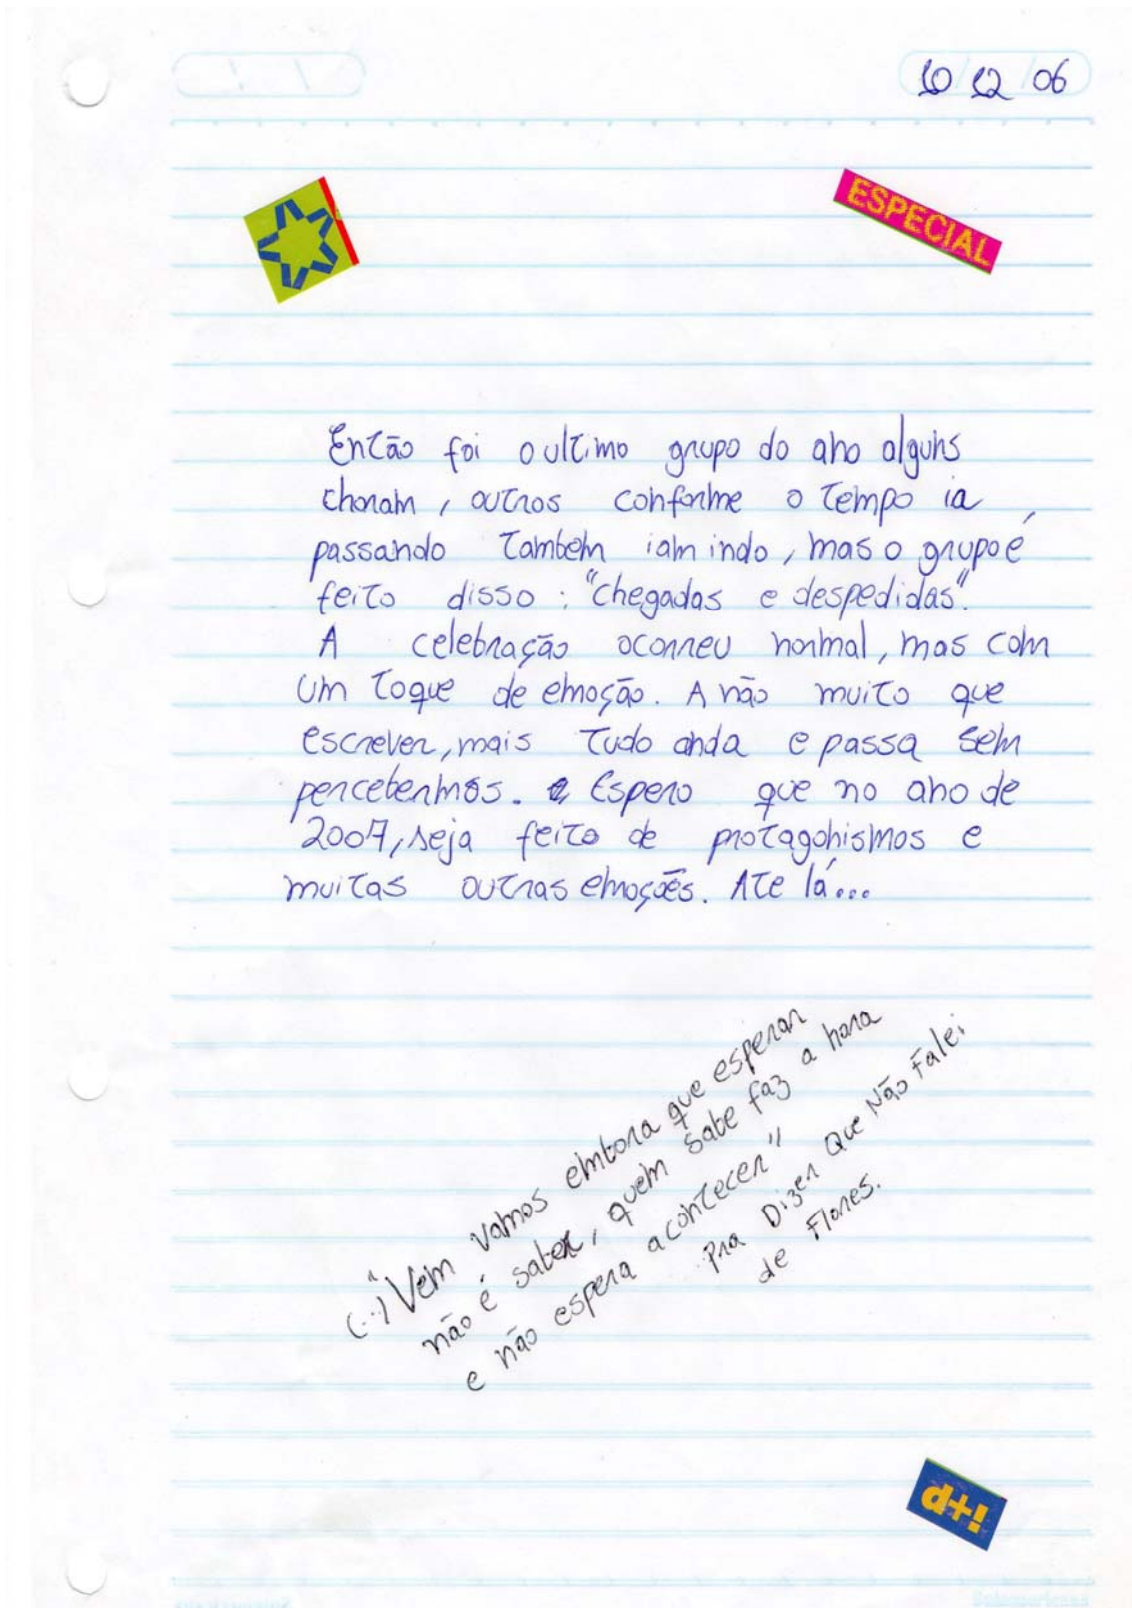 10 12 06
ESPECIAL
Então foi o ultimo grupo do ano alguns
choram, outros conforme o tempo ia
passando também iam indo, mas o grupo é
feito disso: "chegadas e despedidas".
A celebração ocorreu normal, mas com
um toque de emoção. A não muito que
escrever, mais tudo anda e passa sem
percebermos. Espero que no ano de
2007, seja feito de protagonismos e
muitas outras emoções. Ate lá...
(...) "Vem vamos embora que esperar
não é saber, quem sabe faz a hora
e não espera acontecer"
Pra Dizer Que Não Falei
de Flores.
d+!